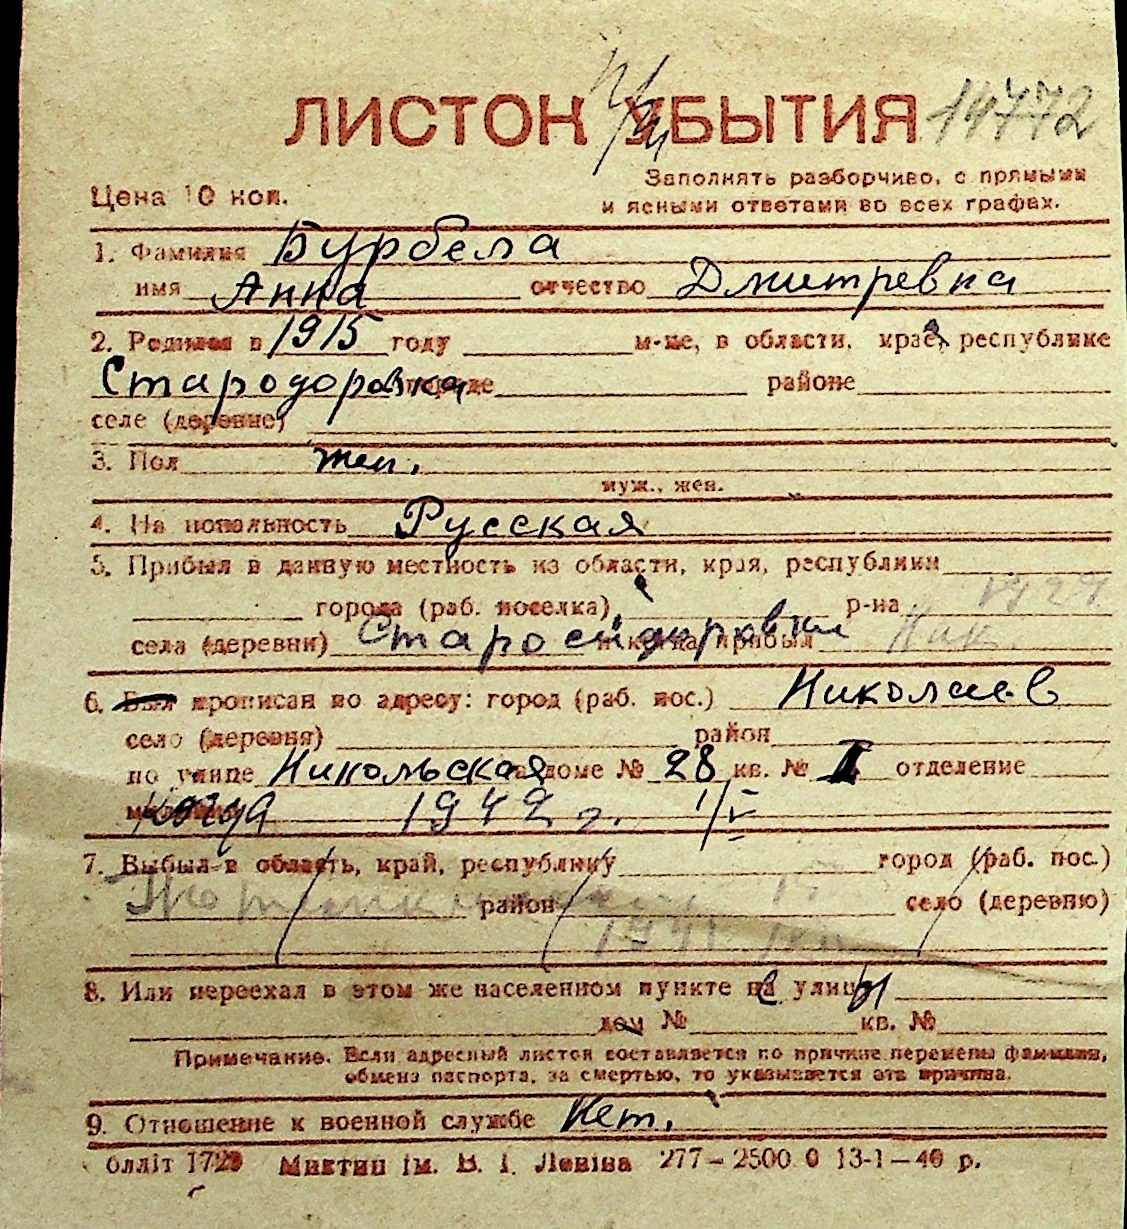 ЛИСТОК УБЫТИЯ 14772
Цена 10 коп.
Заполнять разборчиво, с прямыми
и ясными ответами во всех графах.
1. Фамилия Бурбела
имя Анна отчество Дмитревна
2. Родился в 1915 году м-це, в области, крае, республике
Стародоровка городе районе
селе (деревне)
3. Пол жен.
муж., жен.
4. Национальность Русская
5. Прибыл в данную местность из области, края, республики
города (раб. поселка) р-на
села (деревни) Старосидоровки и когда прибыл Ник
6. Был прописан по адресу: город (раб. пос.) Николаев
село (деревня) район
по улице Никольская в доме № 28 кв. № 1 отделение
милиции когда 1942 г. 1/V
7. Выбыл в область, край, республику город (раб. пос.)
район село (деревню)
8. Или переехал в этом же населенном пункте с улицы
дом № кв. №
Примечание. Если адресный листок составляется по причине перемены фамилии,
обмена паспорта, за смертью, то указывается эта причина.
9. Отношение к военной службе Нет.
Миктип ім. В. І. Леніна 277–2500 0 13-1–40 р.